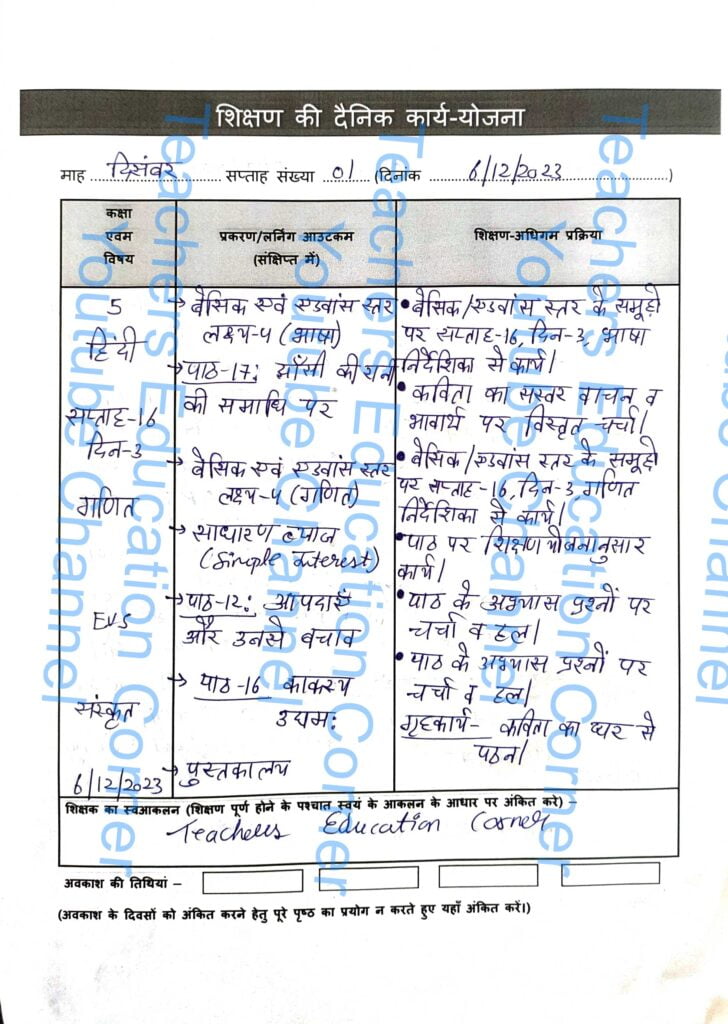 शिक्षण की दैनिक कार्य-योजना
माह दिसंबर सप्ताह संख्या 01 (दिनांक 6/12/2023)
कक्षा
एवम
विषय
प्रकरण/लर्निंग आउटकम
(संक्षिप्त में)
शिक्षण-अधिगम प्रक्रिया
5
हिंदी
सप्ताह-16
दिन-3
गणित
EVS
संस्कृत
6/12/2023
→ बेसिक एवं एडवांस स्तर
लक्ष्य-4 (भाषा)
→ पाठ-17: झाँसी की रानी
की समाधि पर
→ बेसिक एवं एडवांस स्तर
लक्ष्य-4 (गणित)
→ साधारण ब्याज
(Simple Interest)
→ पाठ-12: आपदाएँ
और उनसे बचाव
→ पाठ-16 काकस्य
उद्यम:
→ पुस्तकालय
• बेसिक/एडवांस स्तर के समूहों
पर सप्ताह-16, दिन-3, भाषा
निर्देशिका से कार्य।
• कविता का सस्वर वाचन व
भावार्थ पर विस्तृत चर्चा।
• बेसिक/एडवांस स्तर के समूहों
पर सप्ताह-16, दिन-3, गणित
निर्देशिका से कार्य।
• पाठ पर शिक्षण योजनानुसार
कार्य।
• पाठ के अभ्यास प्रश्नों पर
चर्चा व हल।
• पाठ के अभ्यास प्रश्नों पर
चर्चा व हल।
गृहकार्य- कविता का घर से
पठन।
शिक्षक का स्वआकलन (शिक्षण पूर्ण होने के पश्चात स्वयं के आकलन के आधार पर अंकित करे) –
Teachers Education Corner
अवकाश की तिथियां –
(अवकाश के दिवसों को अंकित करने हेतु पूरे पृष्ठ का प्रयोग न करते हुए यहाँ अंकित करें।)
Teachers Education Corner
Youtube Channel
Teachers Education Corner
Youtube Channel
Teachers Education Corner
Youtube Channel